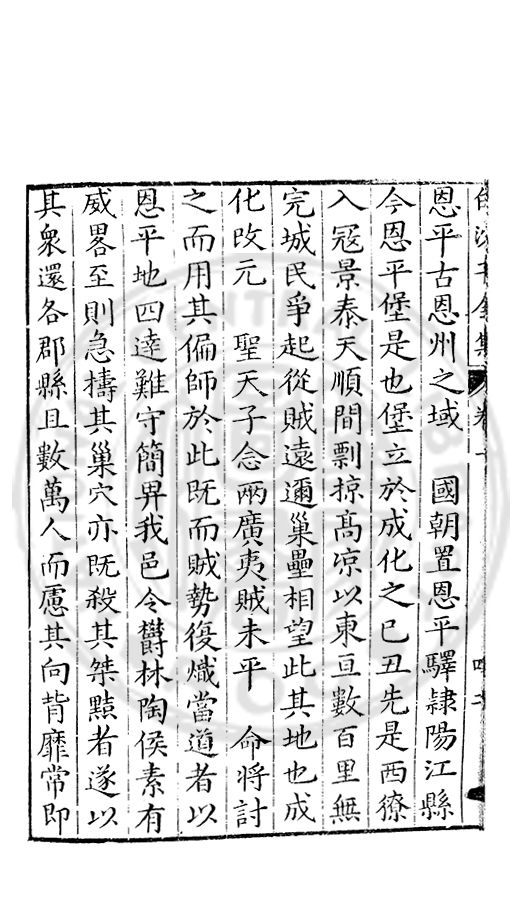 恩平古恩州之域　國朝置恩平驛隷陽江縣
今恩平堡是也堡立於成化之己丑先是西獠
入冦景泰天順間剽掠髙凉以東亘數百里無
完城民爭起從賊遠邇巢壘相望此其地也成
化改元　聖天子念兩廣夷賊未平　命將討
之而用其偏師於此既而賊勢復熾當道者以
恩平地四逹難守簡畀我邑令欝林陶侯素有
威畧至則急擣其巢穴亦既殺其桀黠者遂以
其衆還各郡縣且數萬人而慮其向背靡常即